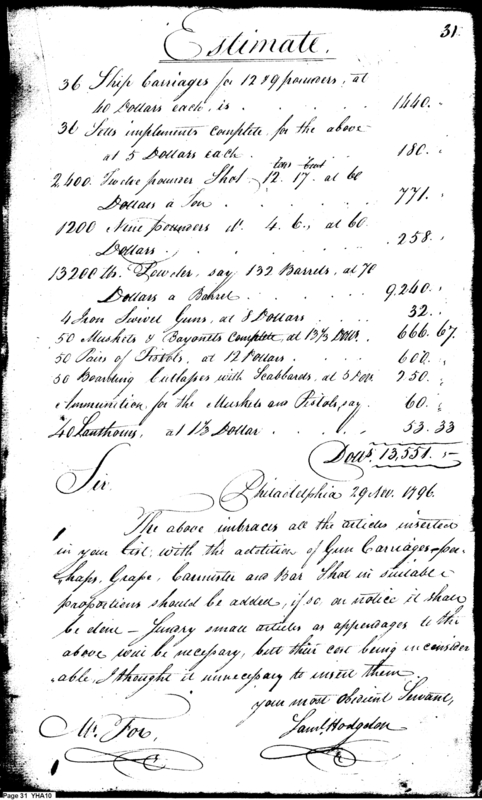 31
Estimate.
36 Ship Carriages for 12 & 9 pounders, at
40 Dollars each, is . . . . . 1440.
36 Setts implements complete for the above
at 5 Dollars each . . . . 180.
tons Cwt
2,400. Twelve pounder Shot 12. 17. at 60
Dollars a Ton . . . . 771.
1200 Nine pounders do. 4. 6, at 60.
Dollars . . . . . 258.
13200 lbs. Powder, say 132 Barrels, at 70
Dollars a Barrel . . . . 9,240.
4 Iron Swivel Guns, at 8 Dollars . . . 32.
50 Muskets & Bayonets complete, at 13⅓ Dolls. 666.67
50 Pairs of Pistols, at 12 Dollars . . . 600.
50 Boarding Cutlasses with Scabbards, at 5 Dolls 250.
Ammunition for the Muskets and Pistols, say 60.
40 Lanthorns, at 1⅓ Dollar . . . . 53.33
Dolls. 13,551.
Sir
Philadelphia 29 Nov. 1796.
The above embraces all the articles inserted
in your list, with the addition of Gun Carriages — per-
haps, Grape, Cannister and Bar Shot in suitable
proportions should be added, if so, on notice it shall
be done — Sundry small articles as appendages to the
above will be necessary, but their cost being inconsider
able, I thought it unnecessary to insert them
your most Obedient Servant,
Saml. Hodgdon
Mr. Fox,
Page 31 YHA10